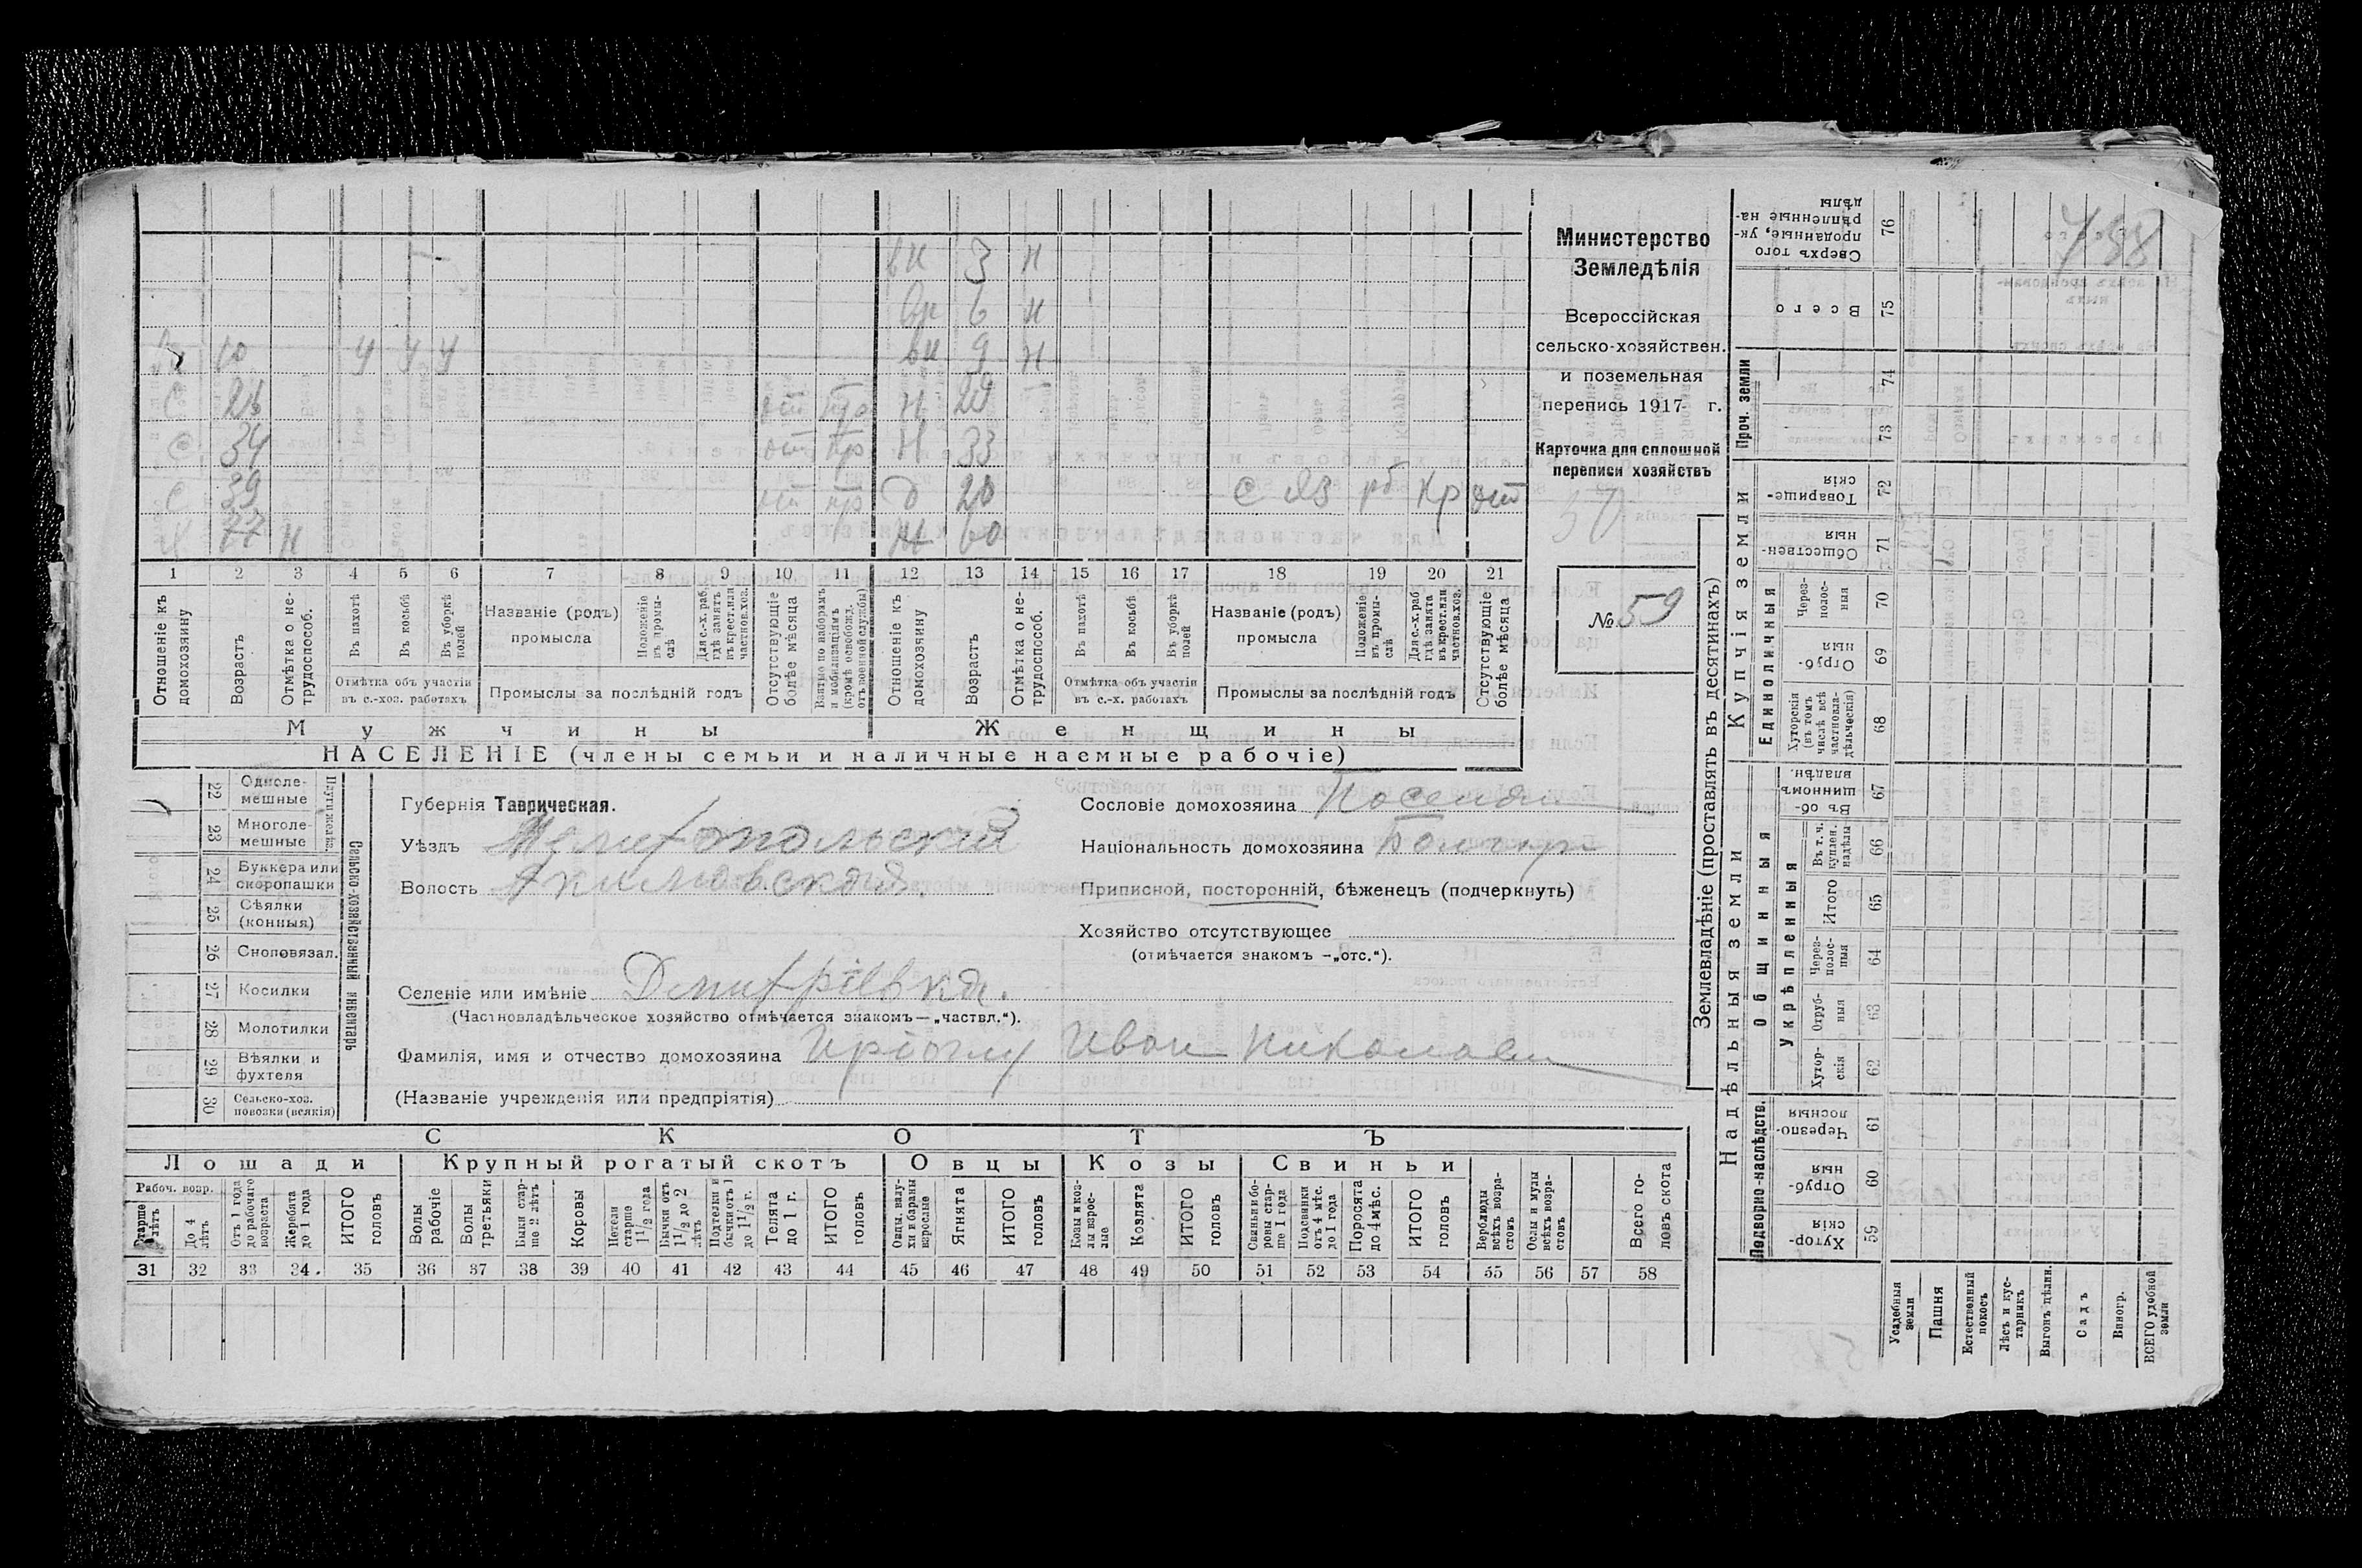 798
вн 3 н
вн 6 н
10 У У У вн 9 н
С 26 от пр Н 29
С 34 от пр Н 33
С 39 от пр Д 20 С Из рб Кр от
77 н 60
1 2 3 4 5 6 7 8 9 10 11 12 13 14 15 16 17 18 19 20 21
Отношеніе къ домохозяину
Возрастъ
Отмѣтка о нетрудоспособ.
Въ пахотѣ
Въ косьбѣ
Въ уборкѣ полей
Отмѣтка объ участіи въ с.-хоз. работахъ
Названіе (родъ) промысла
Положеніе въ промыслѣ
Для с.-х. раб. гдѣ занятъ въ крест. или частнов. хоз.
Промыслы за послѣдній годъ
Отсутствующіе болѣе мѣсяца
Взятые по наборамъ и мобилизаціямъ (кромѣ освобожд. отъ военной службы)
Отношеніе къ домохозяину
Возрастъ
Отмѣтка о нетрудоспособ.
Въ пахотѣ
Въ косьбѣ
Въ уборкѣ полей
Отмѣтка объ участіи въ с.-х. работахъ
Названіе (родъ) промысла
Положеніе въ промыслѣ
Для с.-х. раб. гдѣ занята въ крест. или частнов. хоз.
Промыслы за послѣдній годъ
Отсутствующіе болѣе мѣсяца
Мужчины Женщины
НАСЕЛЕНІЕ (члены семьи и наличные наемные рабочіе)
Министерство
Земледѣлія
Всероссійская
сельско-хозяйствен.
и поземельная
перепись 1917 г.
Карточка для сплошной
переписи хозяйствъ
№ 59
22 Одноле-мешные
23 Многоле-мешные
24 Буккера или скоропашки
25 Сѣялки (конныя)
26 Сноповязал.
27 Косилки
28 Молотилки
29 Вѣялки и фухтеля
30 Сельско-хоз. повозки (всякія)
Сельско-хозяйственный инвентарь
Губернія Таврическая.
Уѣздъ Мелитопольский
Волость Акимовская
Сословіе домохозяина Поселян
Національность домохозяина Болгар
Приписной, посторонній, бѣженецъ (подчеркнуть)
Хозяйство отсутствующее
(отмѣчается знакомъ —„отс.“).
Селеніе или имѣніе Дмитрівка.
(Частновладѣльческое хозяйство отмѣчается знакомъ—„частвл.“).
Фамилія, имя и отчество домохозяина Иріоглу Иван Николаев
(Названіе учрежденія или предпріятія)
СКОТЪ
Лошади Крупный рогатый скотъ Овцы Козы Свиньи
Рабоч. возр.
Старше лѣтъ
До 4 лѣтъ
Отъ 1 года до рабочаго возраста
Жеребята до 1 года
ИТОГО головъ
Волы рабочіе
Волы третьяки
Быки старше 2 лѣтъ
Коровы
Нетели старше 1 1/2 года
Бычки отъ 1 1/2 до 2 лѣтъ
Подтелки и бычки отъ 1 до 1 1/2 г.
Телята до 1 г.
ИТОГО головъ
Овцы, валухи и бараны взрослые
Ягнята
ИТОГО головъ
Козы и козлы взрослые
Козлята
ИТОГО головъ
Свиньи и боровы старше 1 года
Подсвинки отъ 4 мѣс. до 1 года
Поросята до 4 мѣс.
ИТОГО головъ
Верблюды всѣхъ возрастовъ
Ослы и мулы всѣхъ возрастовъ
Всего головъ скота
31 32 33 34 35 36 37 38 39 40 41 42 43 44 45 46 47 48 49 50 51 52 53 54 55 56 57 58
Землевладѣніе (проставлять въ десятинахъ)
Надѣльныя земли Купчія земли
Проч. земли
Подворно-наслѣдств.
Общинныя
Укрѣпленныя
Единоличныя
76 Сверхъ того проданные, укрѣпленные надѣлы
75 Всего
74
73
72 Товарищескія
71 Общественныя
70 Черезполосныя
69 Отрубныя
68 Хуторскія (въ томъ числѣ всѣ частновладѣльческія)
67 Въ общинномъ владѣн.
66 Въ т. ч. куплен. надѣлы
65 Итого
64 Черезполосныя
63 Отрубныя
62 Хуторскія
61 Черезполосныя
60 Отрубныя
59 Хуторскія
Усадебныя земли
Пашня
Естественный покосъ
Лѣсъ и кустарникъ
Выгонъ цѣлин.
Садъ
Виногр.
ВСЕГО удобной земли